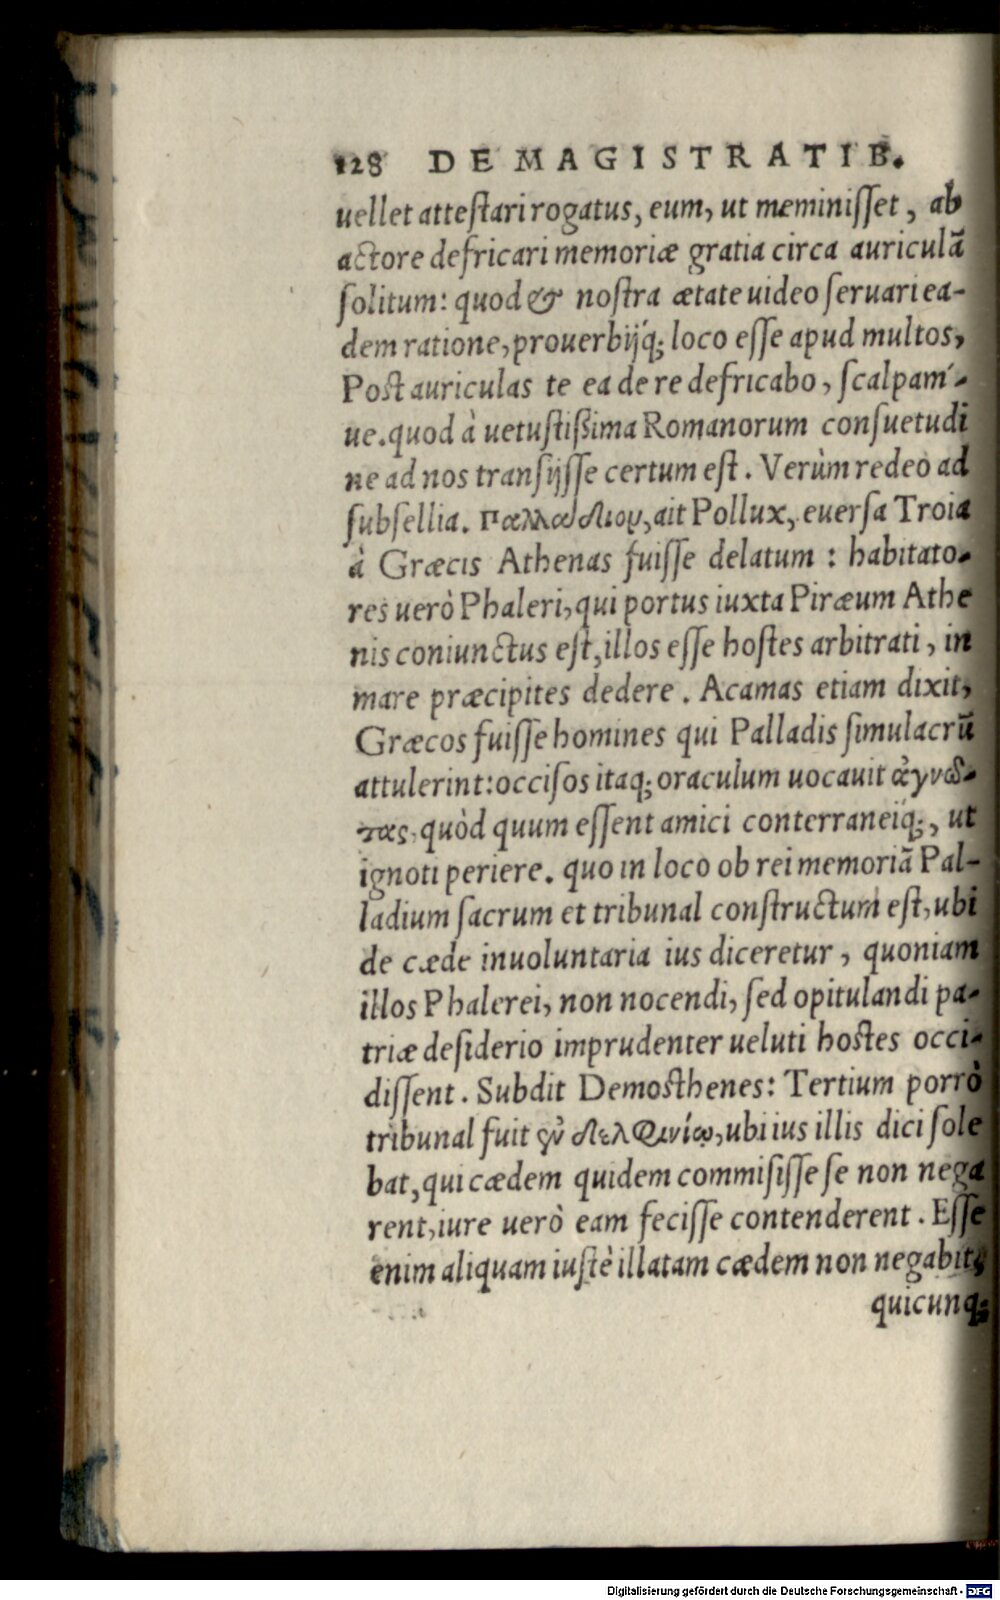 128 DE MAGISTRATIB.
uellet attestari rogatus, eum, ut meminisset, ab
actore defricari memoriæ gratia circa auriculā
solitum: quod & nostra ætate uideo seruari ea-
dem ratione, prouerbijq́; loco esse apud multos,
Post auriculas te ea de re defricabo, scalpam´-
ue. quod à uetustißima Romanorum consuetudi
ne ad nos transijsse certum est. Verùm redeo ad
subsellia. Παλλάδιον, ait Pollux, euersa Troia
à Græcis Athenas fuisse delatum : habitato-
res uerò Phaleri, qui portus iuxta Piræum Athe
nis coniunctus est, illos esse hostes arbitrati, in
mare præcipites dedere. Acamas etiam dixit,
Græcos fuisse homines qui Palladis simulacrū
attulerint: occisos itaq; oraculum uocauit ἀγνῶ-
τας, quòd quum essent amici conterraneiq́;, ut
ignoti periere. quo in loco ob rei memoriā Pal-
ladium sacrum et tribunal constructum est, ubi
de cæde inuoluntaria ius diceretur, quoniam
illos Phalerei, non nocendi, sed opitulandi pa-
triæ desiderio imprudenter ueluti hostes occi-
dissent. Subdit Demosthenes: Tertium porrò
tribunal fuit ἐν δελφινίῳ, ubi ius illis dici sole
bat, qui cædem quidem commisisse se non nega
rent, iure uerò eam fecisse contenderent. Esse
enim aliquam iustè illatam cædem non negabit,
quicunq;
Digitalisierung gefördert durch die Deutsche Forschungsgemeinschaft - DFG